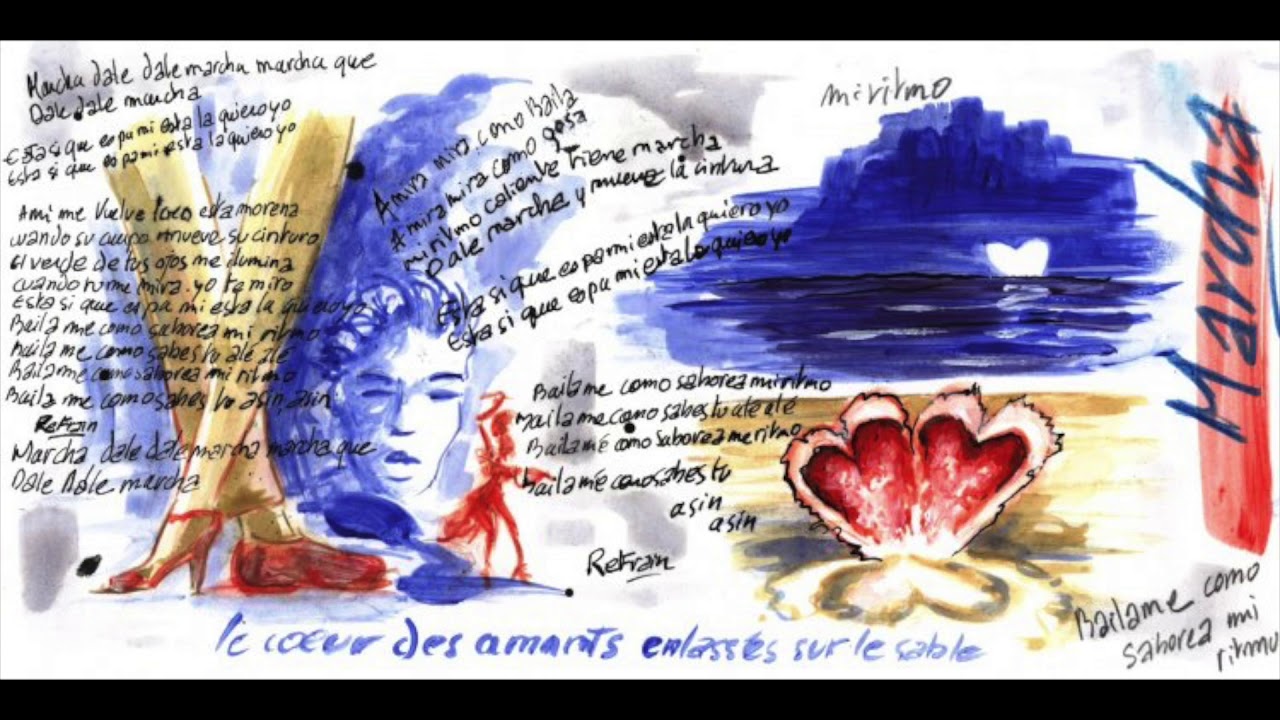 Marcha dale dale marcha marcha que
Dale dale marcha
Esta si que es pa mi esta la quiero yo
Esta si que es pa mi esta la quiero yo
Ami me vuelve loco esta morena
cuando su cuerpo mueve su cintura
el verde de tus ojos me ilumina
cuando tu me mira. yo te miro
Esta si que es pa mi esta la quiero yo
Baila me como saborea mi ritmo
baila me como sabes tu ate ate
Baila me como saborea mi ritmo
Baila me como sabes tu asin, asin
Refrain
Marcha dale dale marcha marcha que
Dale Dale marcha
Amira mira como Baila
Amira mira como gosa
mi ritmo caliente tiene marcha
Dale marcha y mueve la cintura
Esta si que es pa mi esta la quiero yo
Esta si que es pa mi esta la quiero yo
Bailame como saborea mi ritmo
bailame como sabes tu ate até
Bailamé como saborea me ritmo
bailamé como sabes tu
asin
asin
Refrain
mi ritmo
Marcha
Bailame como
saborea mi
ritmo
le coeur des amants enlassés sur le sable